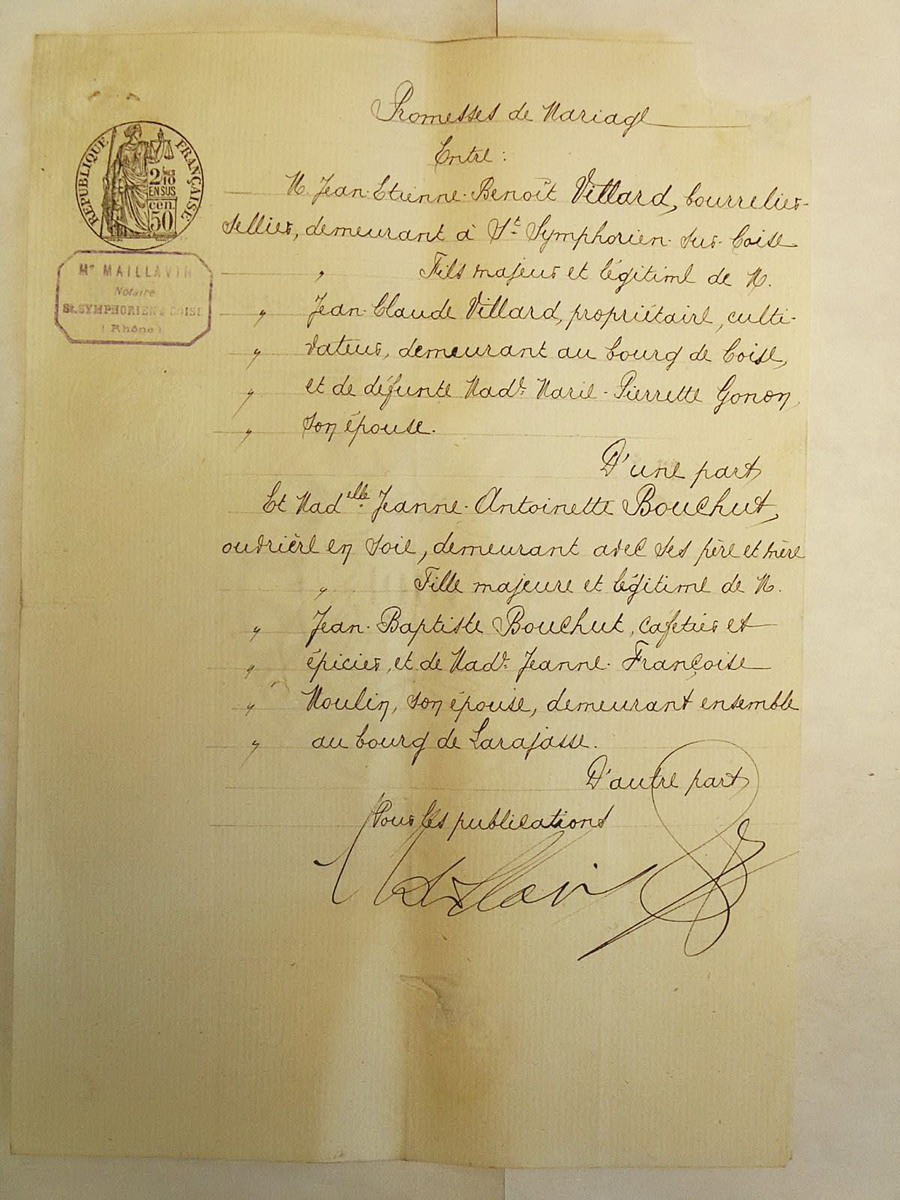 Promesses de Mariage
Entre :
RÉPUBLIQUE FRANÇAISE
2/10
EN SUS
50 cen.
Me MAILLAVIN
Notaire
St. SYMPHORIEN s/ COISE
( Rhône )
M. Jean-Etienne-Benoît Villard, bourrelier-
sellier, demeurant à St. Symphorien-sur-Coise
" Fils majeur et légitime de M.
" Jean-Claude Villard, propriétaire, culti-
" vateur, demeurant au bourg de Coise,
" et de défunte Made. Marie-Pierrette Gonon,
" son épouse.
D'une part
Et Madelle. Jeanne-Antoinette Bouchut,
ouvrière en soie, demeurant avec ses père et mère
" Fille majeure et légitime de M.
" Jean-Baptiste Bouchut, cafetier et
" épicier, et de Made. Jeanne-Françoise
" Moulin, son épouse, demeurant ensemble
" au bourg de Larajasse.
D'autre part
Pour les publications
Maillavin